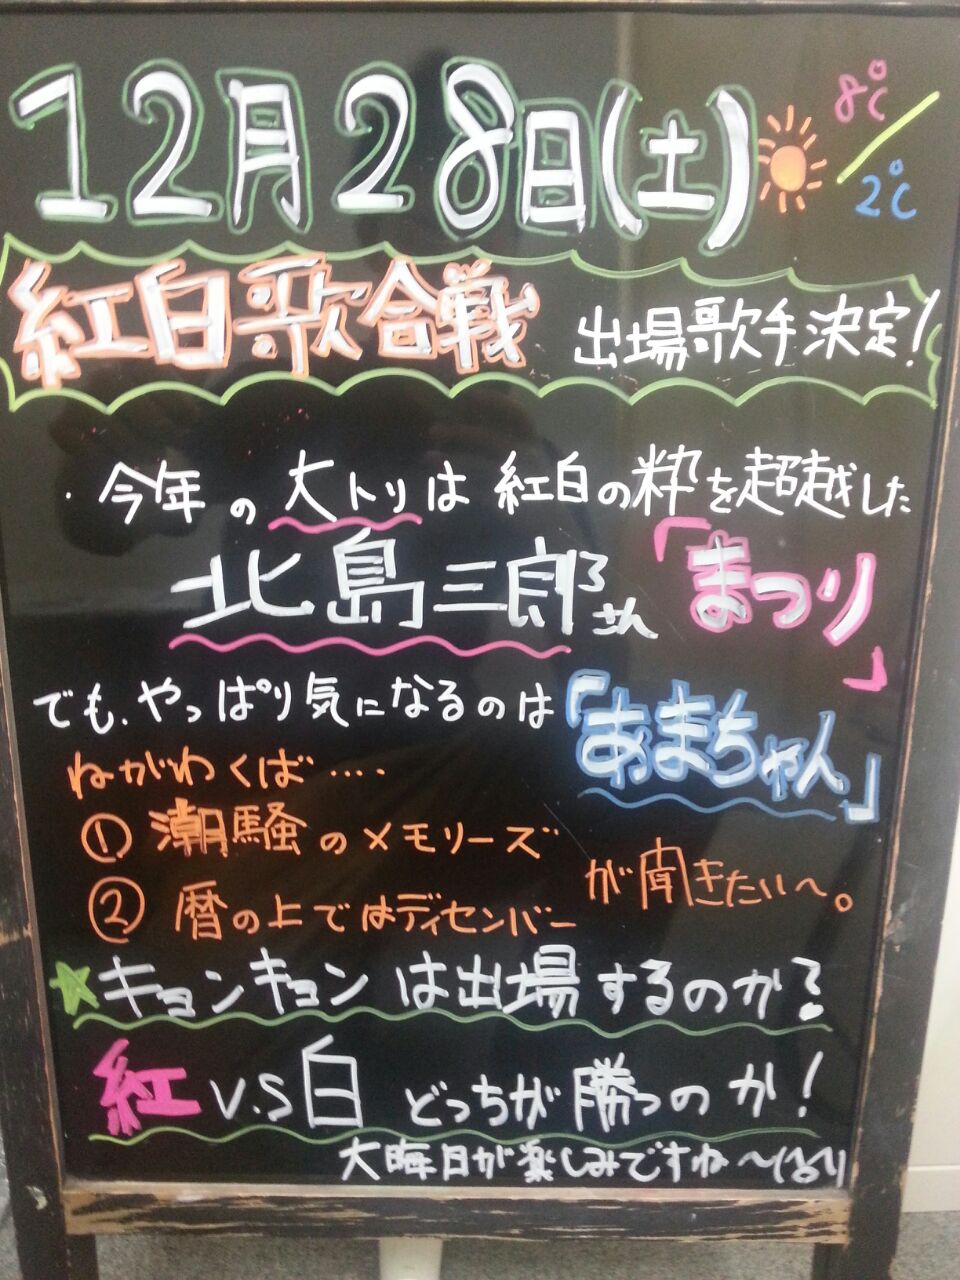 12月28日(土) 8℃/2℃
紅白歌合戦 出場歌手決定!
・今年の大トリは紅白の粋を超越した
北島三郎さん「まつり」
でも、やっぱり気になるのは「あまちゃん」
ねがわくば‥‥
①潮騒のメモリーズ
②暦の上ではディセンバー
が聞きたい〜。
★キョンキョンは出場するのか?
紅V.S白 どっちが勝つのか!
大晦日が楽しみですね〜